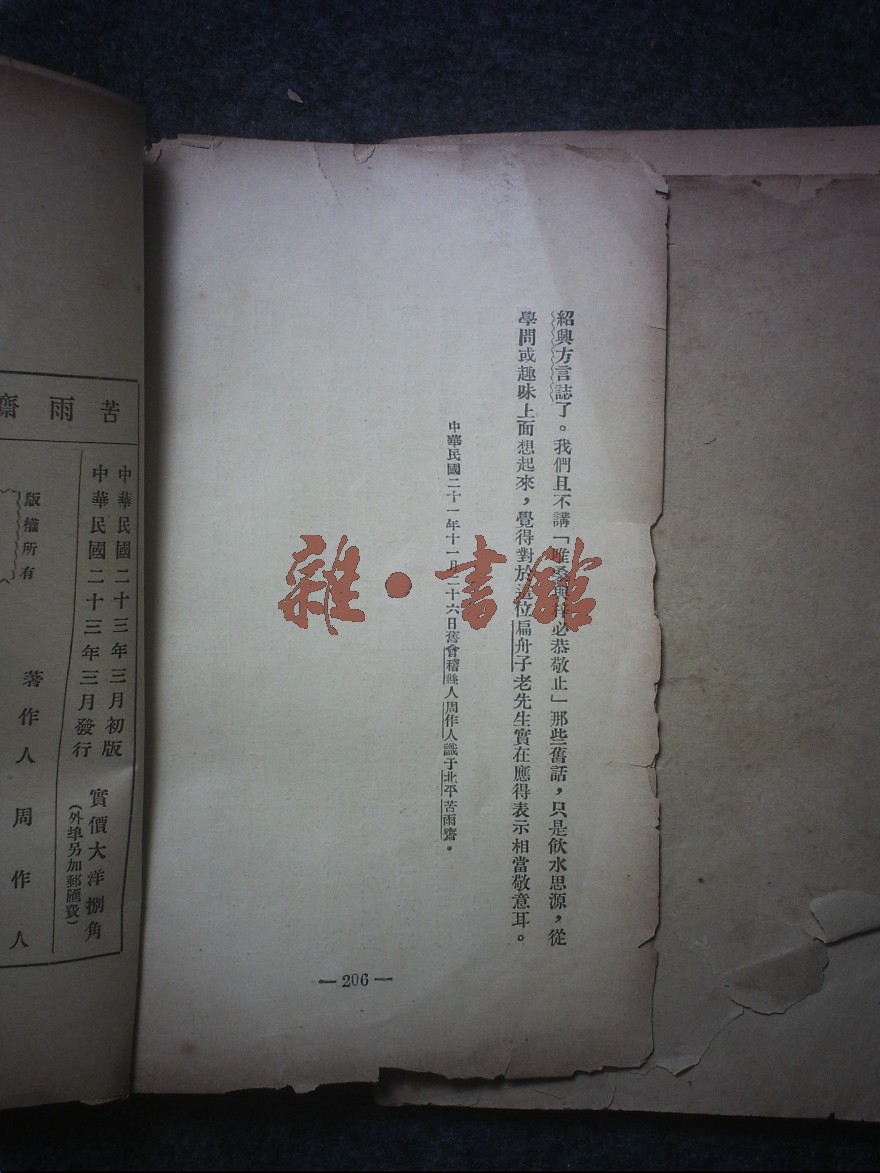 紹興方言誌了。我們且不講「唯桑與梓必恭敬止」那些舊話，只是飲水思源，從
學問或趣味上面想起來，覺得對於這位扁舟子老先生實在應得表示相當敬意耳。
中華民國二十一年十一月二十六日舊會稽縣人周作人識于北平苦雨齋。
— 206 —
雜·書館
苦雨齋
中華民國二十三年三月初版
中華民國二十三年三月發行
實價大洋捌角
(外埠另加郵匯費)
版權所有
著作人 周作人